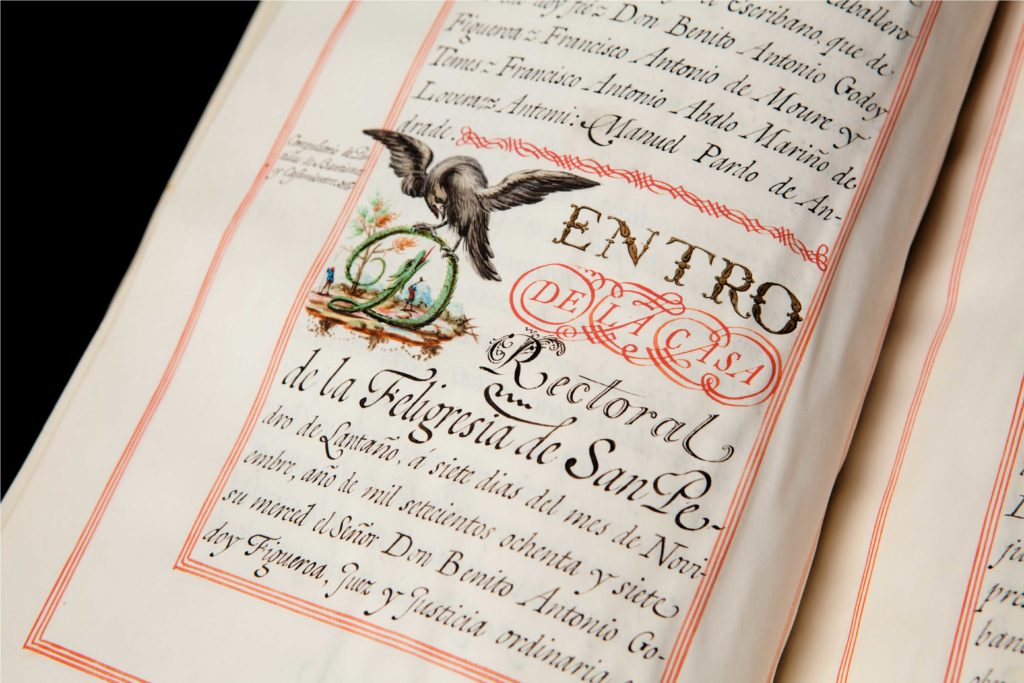 Escribano, que de
doy fee= Don Benito Antonio Godoy
Figueroa= Francisco Antonio de Moure y
Temes= Francisco Antonio Abalo Mariño de
Lovera= Antemi: Manuel Pardo de An-
drade.
DENTRO
DE LA CASA
Rectoral
de la Feligresia de San Pe-
dro de Lantaño, á siete dias del mes de Novi-
embre, año de mil setecientos ochenta y siete
su merced el Señor Don Benito Antonio Go-
doy Figueroa, Juez y Justicia ordinaria